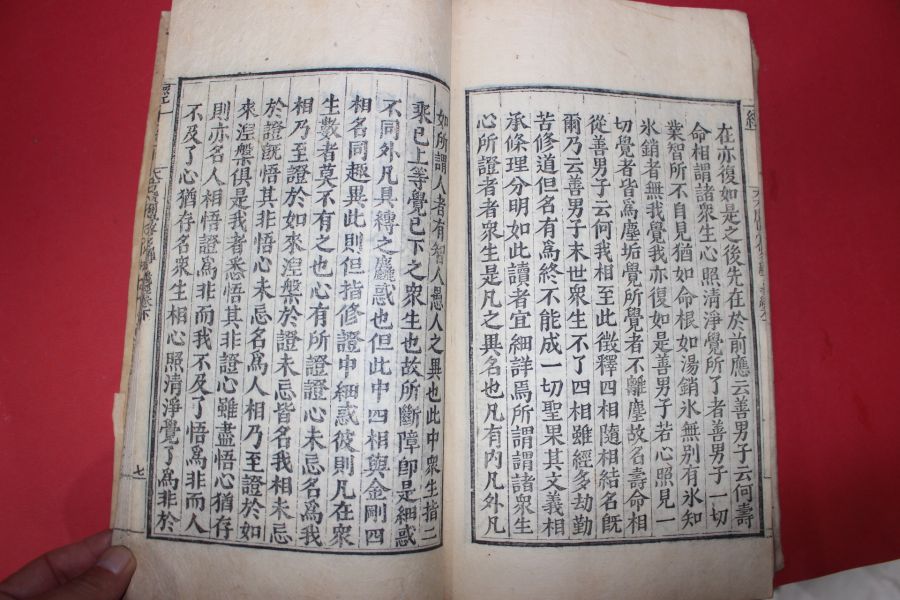 在亦復如是之後先在於前應云善男子云何壽
命相謂諸衆生心照清淨覺所了者善男子一切
業智所不自見猶如命根如湯銷氷無別有氷知
氷銷者無我覺我亦復如是善男子若心照見一
切覺者皆爲塵垢覺所覺者不離塵故名壽命相
從善男子云何我相至此徵釋四相隨相結名旣
爾乃云善男子末世衆生不了四相雖經多劫勤
苦修道但名有爲終不能成一切聖果其文義相
承條理分明如此讀者宜細詳焉所謂謂諸衆生
心所證者者衆生是凡之異名也凡有內凡外凡
如所謂人者有智人愚人之異也此中衆生指二
乘已上等覺已下之衆生也故所斷障卽是細惑
不同外凡具縛之麤惑也但此中四相與金剛四
相名同趣異此則但指修證中細惑彼則凡在衆
生數者莫不有之也心有所證證心未忘名爲我
相乃至證於如來涅槃於證未忘皆名我相未忘
於證旣悟其非悟心未忘名爲人相乃至證於如
來涅槃俱是我者悉悟其非證心雖盡悟心猶存
則亦名人相悟證爲非而我不及了悟爲非而人
不及了心猶存名衆生相心照清淨覺了爲非於
經
七